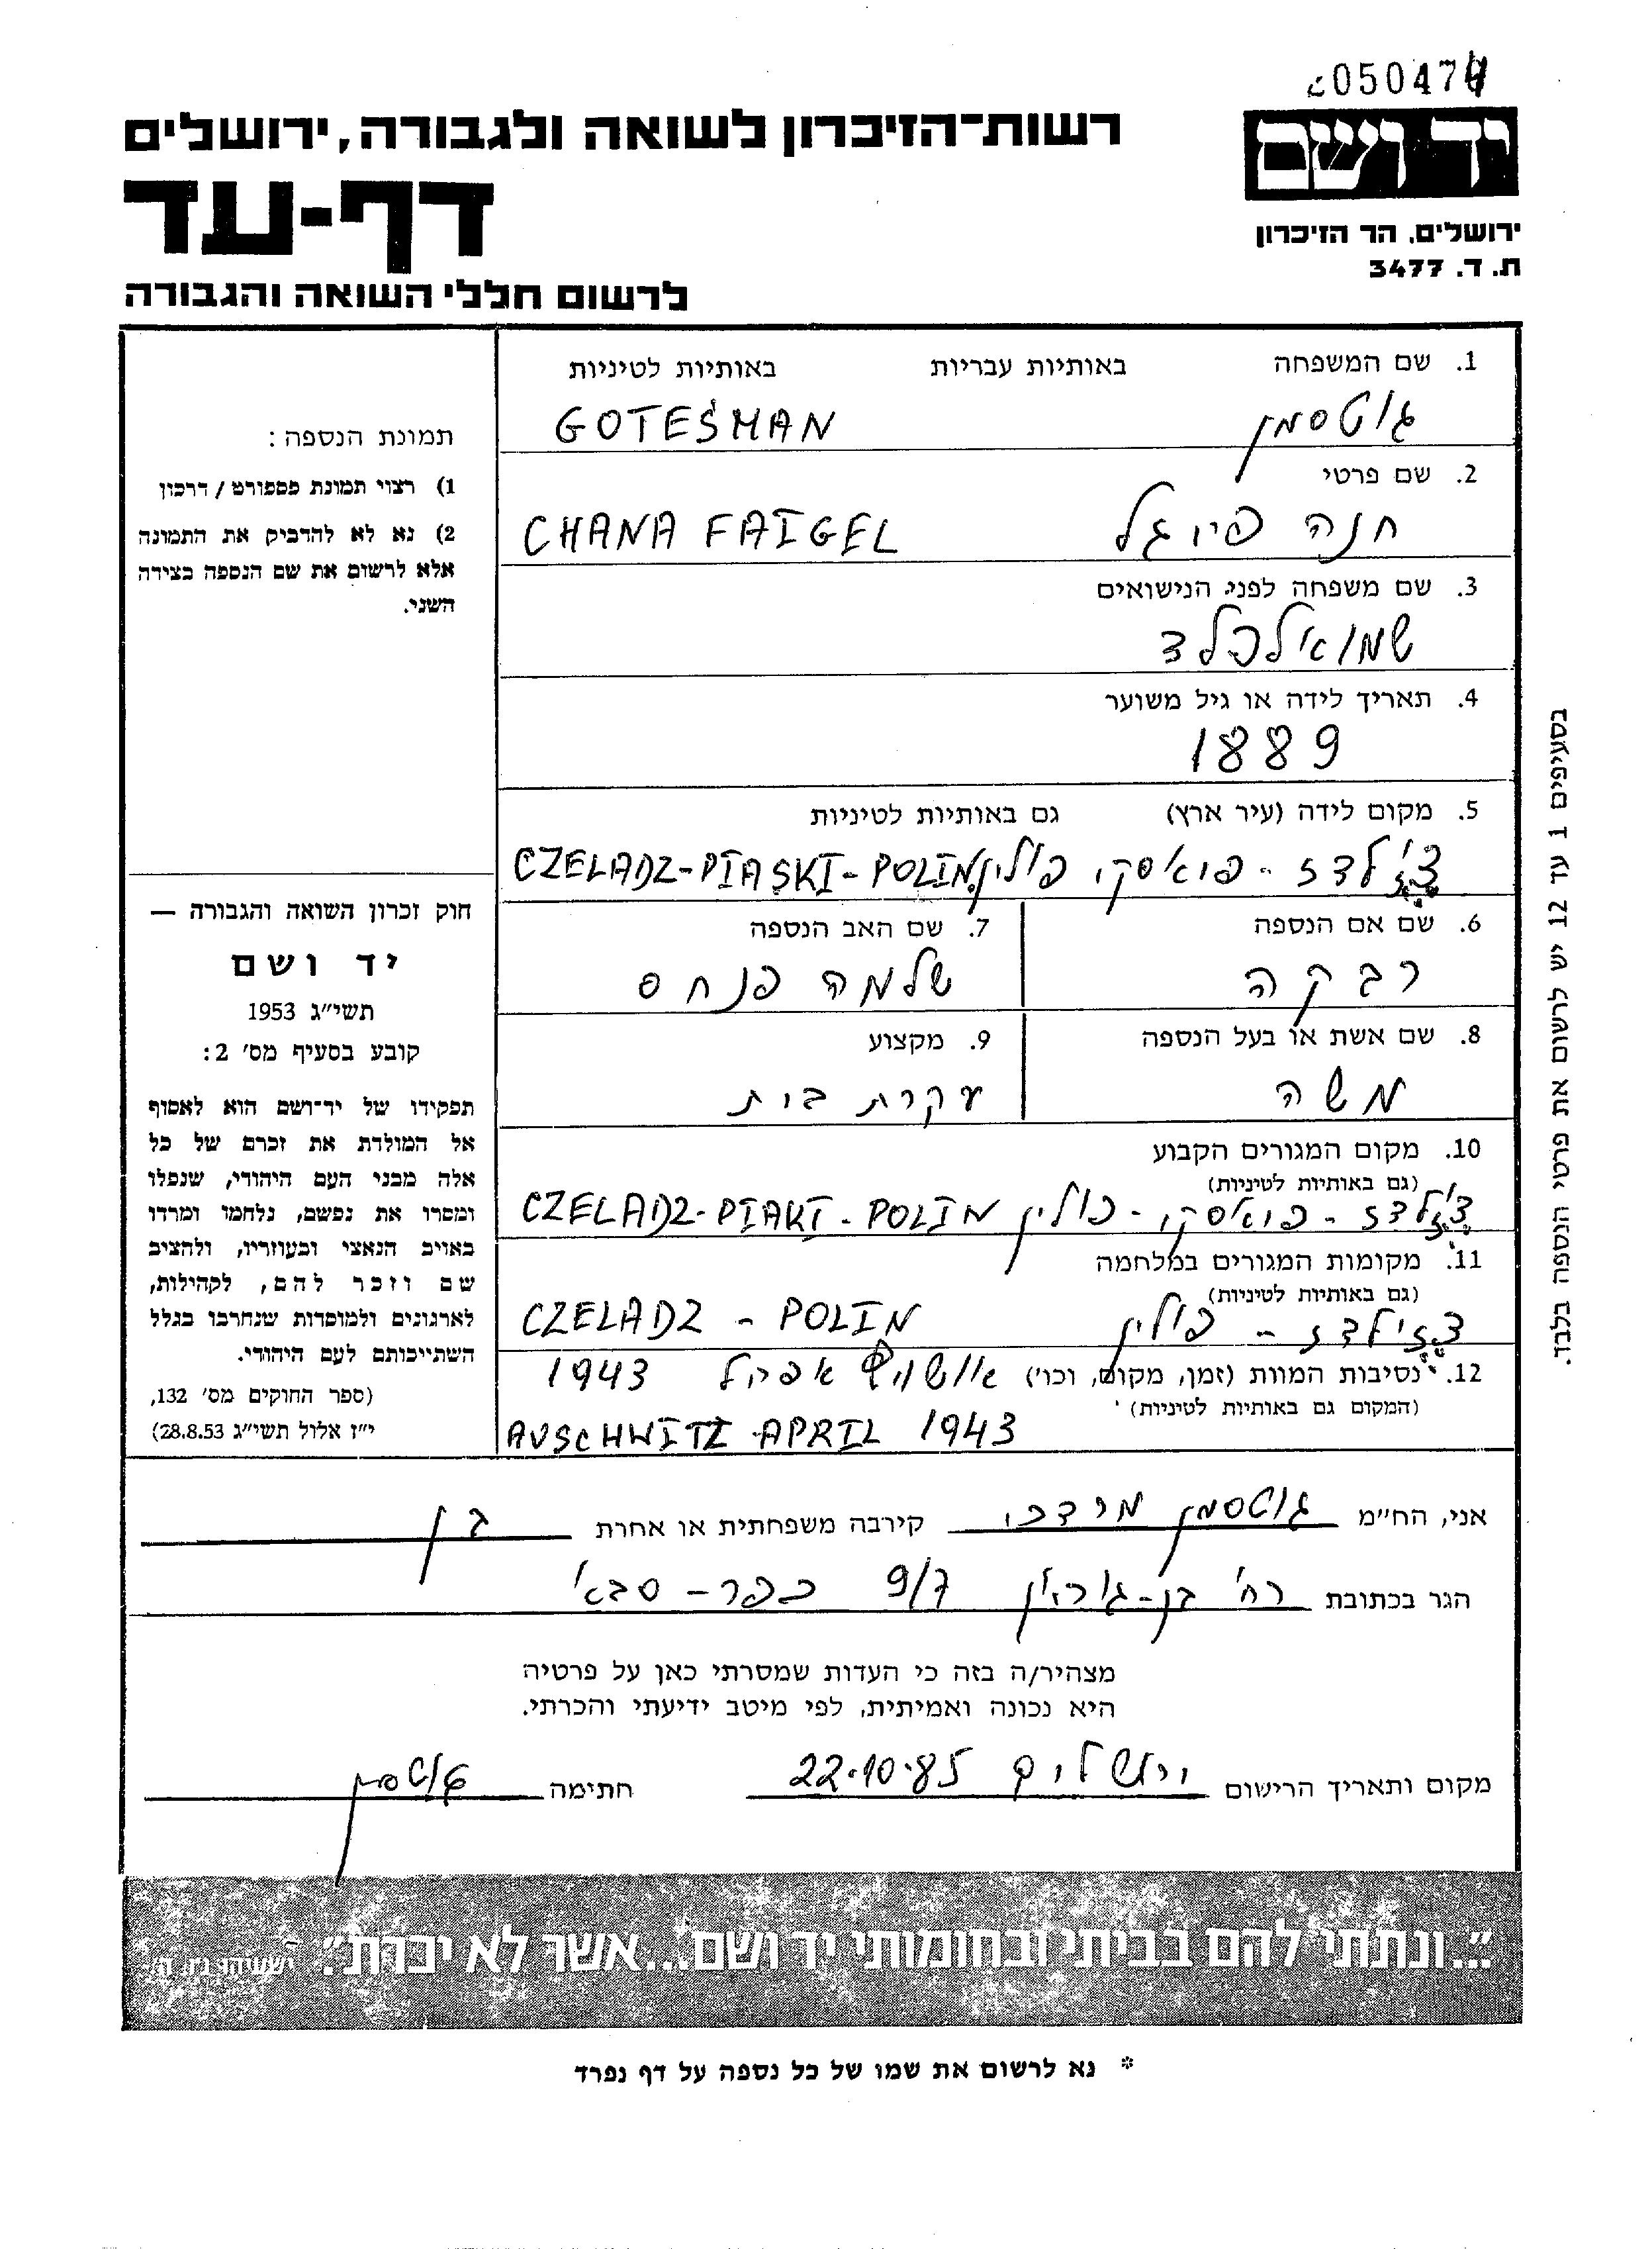 050474
רשות-הזיכרון לשואה ולגבורה, ירושלים
יד ושם
דף-עד
ירושלים, הר הזיכרון
ת. ד. 3477
לרשום חללי השואה והגבורה
1. שם המשפחה באותיות עבריות באותיות לטיניות
גוטסמן GOTESMAN
2. שם פרטי
חנה פייגל CHANA FAIGEL
3. שם משפחה לפני הנישואים
שמואלפלד
4. תאריך לידה או גיל משוער
1889
5. מקום לידה (עיר ארץ) גם באותיות לטיניות
צ'לדז - פיאסקי פולין CZELADZ-PIASKI-POLIN
6. שם אם הנספה 7. שם האב הנספה
רבקה שלמה פנחס
8. שם אשת או בעל הנספה 9. מקצוע
משה עקרת בית
10. מקום המגורים הקבוע
(גם באותיות לטיניות)
צ'לדז - פיאסקי - פולין CZELADZ-PIAKI-POLIN
11. מקומות המגורים במלחמה
(גם באותיות לטיניות)
פולין CZELADZ - POLIN
12. נסיבות המוות (זמן, מקום, וכו') אושויץ אפריל 1943
(המקום גם באותיות לטיניות)
AUSCHWITZ APRIL 1943
תמונת הנספה:
1) רצוי תמונת פספורט / דרכון
2) נא לא להדביק את התמונה
אלא לרשום את שם הנספה בצידה
השני.
חוק זכרון השואה והגבורה —
יד ושם
תשי״ג 1953
קובע בסעיף מס' 2:
תפקידו של יד־ושם הוא לאסוף
אל המולדת את זכרם של כל
אלה מבני העם היהודי, שנפלו
ומסרו את נפשם, נלחמו ומרדו
באויב הנאצי ובעוזריו, ולהציב
שם וזכר להם, לקהילות,
לארגונים ולמוסדות שנחרבו בגלל
השתייכותם לעם היהודי.
(ספר החוקים מס' 132,
י״ז אלול תשי״ג 28.8.53)
בסעיפים 1 עד 12 יש לרשום את פרטי הנספה בלבד.
אני, הח״מ גוטסמן מרדכי קירבה משפחתית או אחרת בן
הגר בכתובת רח' בן-גוריון 9/7 כפר-סבא
מצהיר/ה בזה כי העדות שמסרתי כאן על פרטיה
היא נכונה ואמיתית, לפי מיטב ידיעתי והכרתי.
מקום ותאריך הרישום ירושלים 22.10.85 חתימה גוטסמן
"...ונתתי להם בביתי ובחומותי יד ושם...אשר לא יכרת". ישעיהו נו, ה'
* נא לרשום את שמו של כל נספה על דף נפרד